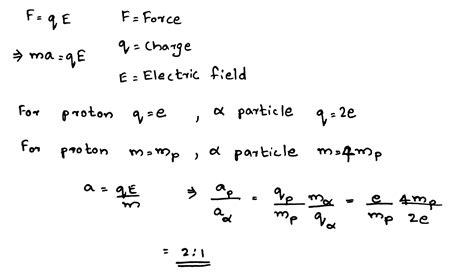 F = qE F = Force
⇒ ma = qE q = Charge
E = Electric field
For proton q = e , α particle q = 2e
For proton m = mp , α particle m = 4mp
a = qE/m ⇒ ap/aα = qp/mp mα/qα = e/mp 4mp/2e
= 2:1